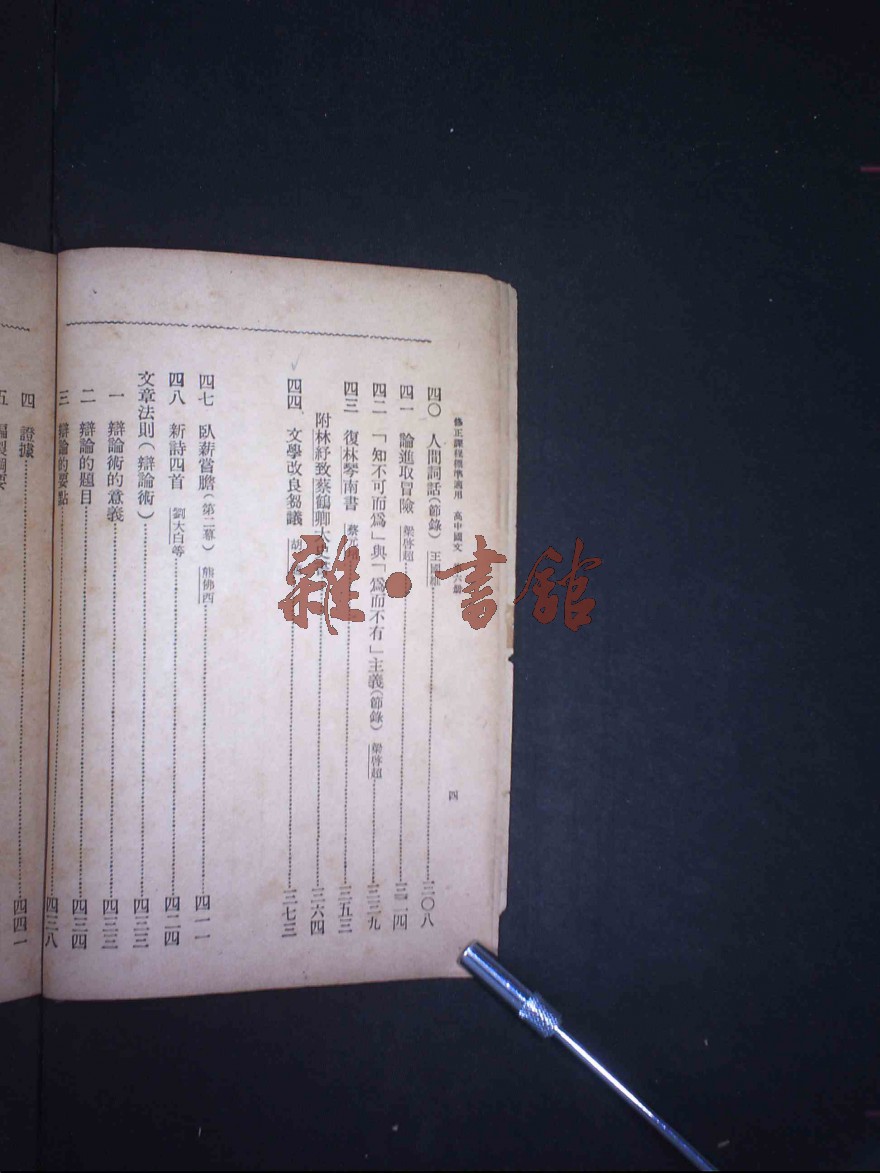 修正課程標準適用 高中國文 六冊
四
四〇 人間詞話(節錄) 王國維 三〇八
四一 論進取冒險 梁啓超 三一四
四二 「知不可而爲」與「爲而不有」主義(節錄) 梁啓超 三三九
四三 復林琴南書 蔡元 三五三
附林紓致蔡鶴卿 三六四
四四、文學改良芻議 胡 三七三
四七 臥薪嘗膽(第二幕) 熊佛西 四一一
四八 新詩四首 劉大白等 四二四
文章法則(辯論術) 四三三
一 辯論術的意義 四三三
二 辯論的題目 四三四
三 辯論的要點 四三八
四 證據 四四一
雜·書館